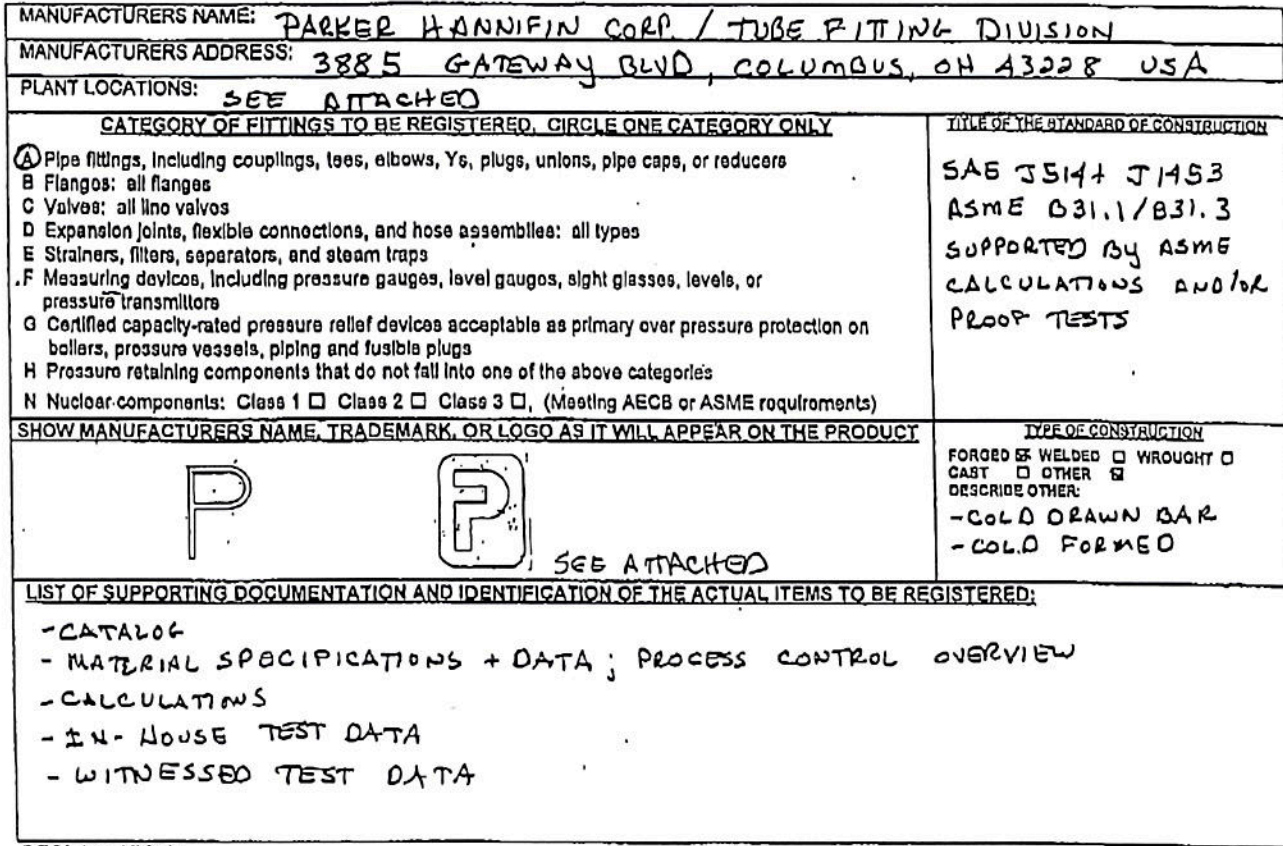 MANUFACTURERS NAME: PARKER HANNIFIN CORP. / TUBE FITTING DIVISION
MANUFACTURERS ADDRESS: 3885 GATEWAY BLVD, COLUMBUS, OH 43228 USA
PLANT LOCATIONS: SEE ATTACHED
CATEGORY OF FITTINGS TO BE REGISTERED, CIRCLE ONE CATEGORY ONLY
A Pipe fittings, including couplings, tees, elbows, Ys, plugs, unions, pipe caps, or reducers
B Flanges: all flanges
C Valves: all line valves
D Expansion joints, flexible connections, and hose assemblies: all types
E Strainers, filters, separators, and steam traps
F Measuring devices, including pressure gauges, level gauges, sight glasses, levels, or
pressure transmitters
G Certified capacity-rated pressure relief devices acceptable as primary over pressure protection on
boilers, pressure vessels, piping and fusible plugs
H Pressure retaining components that do not fall into one of the above categories
N Nuclear components: Class 1 ☐ Class 2 ☐ Class 3 ☐, (Meeting AECB or ASME requirements)
TITLE OF THE STANDARD OF CONSTRUCTION
SAE J514 + J1453
ASME B31.1/B31.3
SUPPORTED BY ASME
CALCULATIONS AND/OR
PROOF TESTS
SHOW MANUFACTURERS NAME, TRADEMARK, OR LOGO AS IT WILL APPEAR ON THE PRODUCT
P P
SEE ATTACHED
TYPE OF CONSTRUCTION
FORGED ☒ WELDED ☐ WROUGHT ☐
CAST ☐ OTHER ☒
DESCRIBE OTHER:
- COLD DRAWN BAR
- COLD FORMED
LIST OF SUPPORTING DOCUMENTATION AND IDENTIFICATION OF THE ACTUAL ITEMS TO BE REGISTERED:
- CATALOG
- MATERIAL SPECIFICATIONS + DATA ; PROCESS CONTROL OVERVIEW
- CALCULATIONS
- IN-HOUSE TEST DATA
- WITNESSED TEST DATA